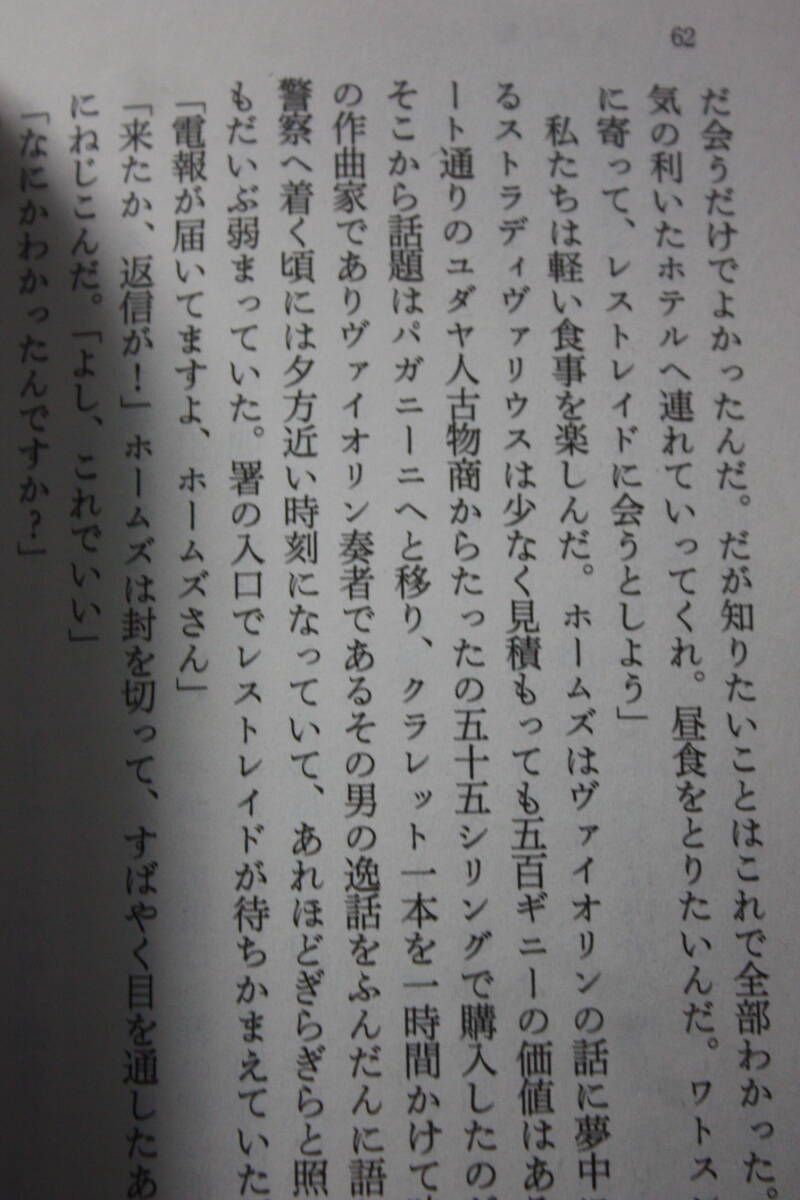 62
だ会うだけでよかったんだ。だが知りたいことはこれで全部わかった。
気の利いたホテルへ連れていってくれ。昼食をとりたいんだ。ワトス
に寄って、レストレイドに会うとしよう」
私たちは軽い食事を楽しんだ。ホームズはヴァイオリンの話に夢中
るストラディヴァリウスは少なく見積もっても五百ギニーの価値はあ
ート通りのユダヤ人古物商からたったの五十五シリングで購入したの
そこから話題はパガニーニへと移り、クラレット一本を一時間かけて
の作曲家でありヴァイオリン奏者であるその男の逸話をふんだんに語
警察へ着く頃には夕方近い時刻になっていて、あれほどぎらぎらと照
もだいぶ弱まっていた。署の入口でレストレイドが待ちかまえていた
「電報が届いてますよ、ホームズさん」
「来たか、返信が！」ホームズは封を切って、すばやく目を通したあ
にねじこんだ。「よし、これでいい」
「なにかわかったんですか？」